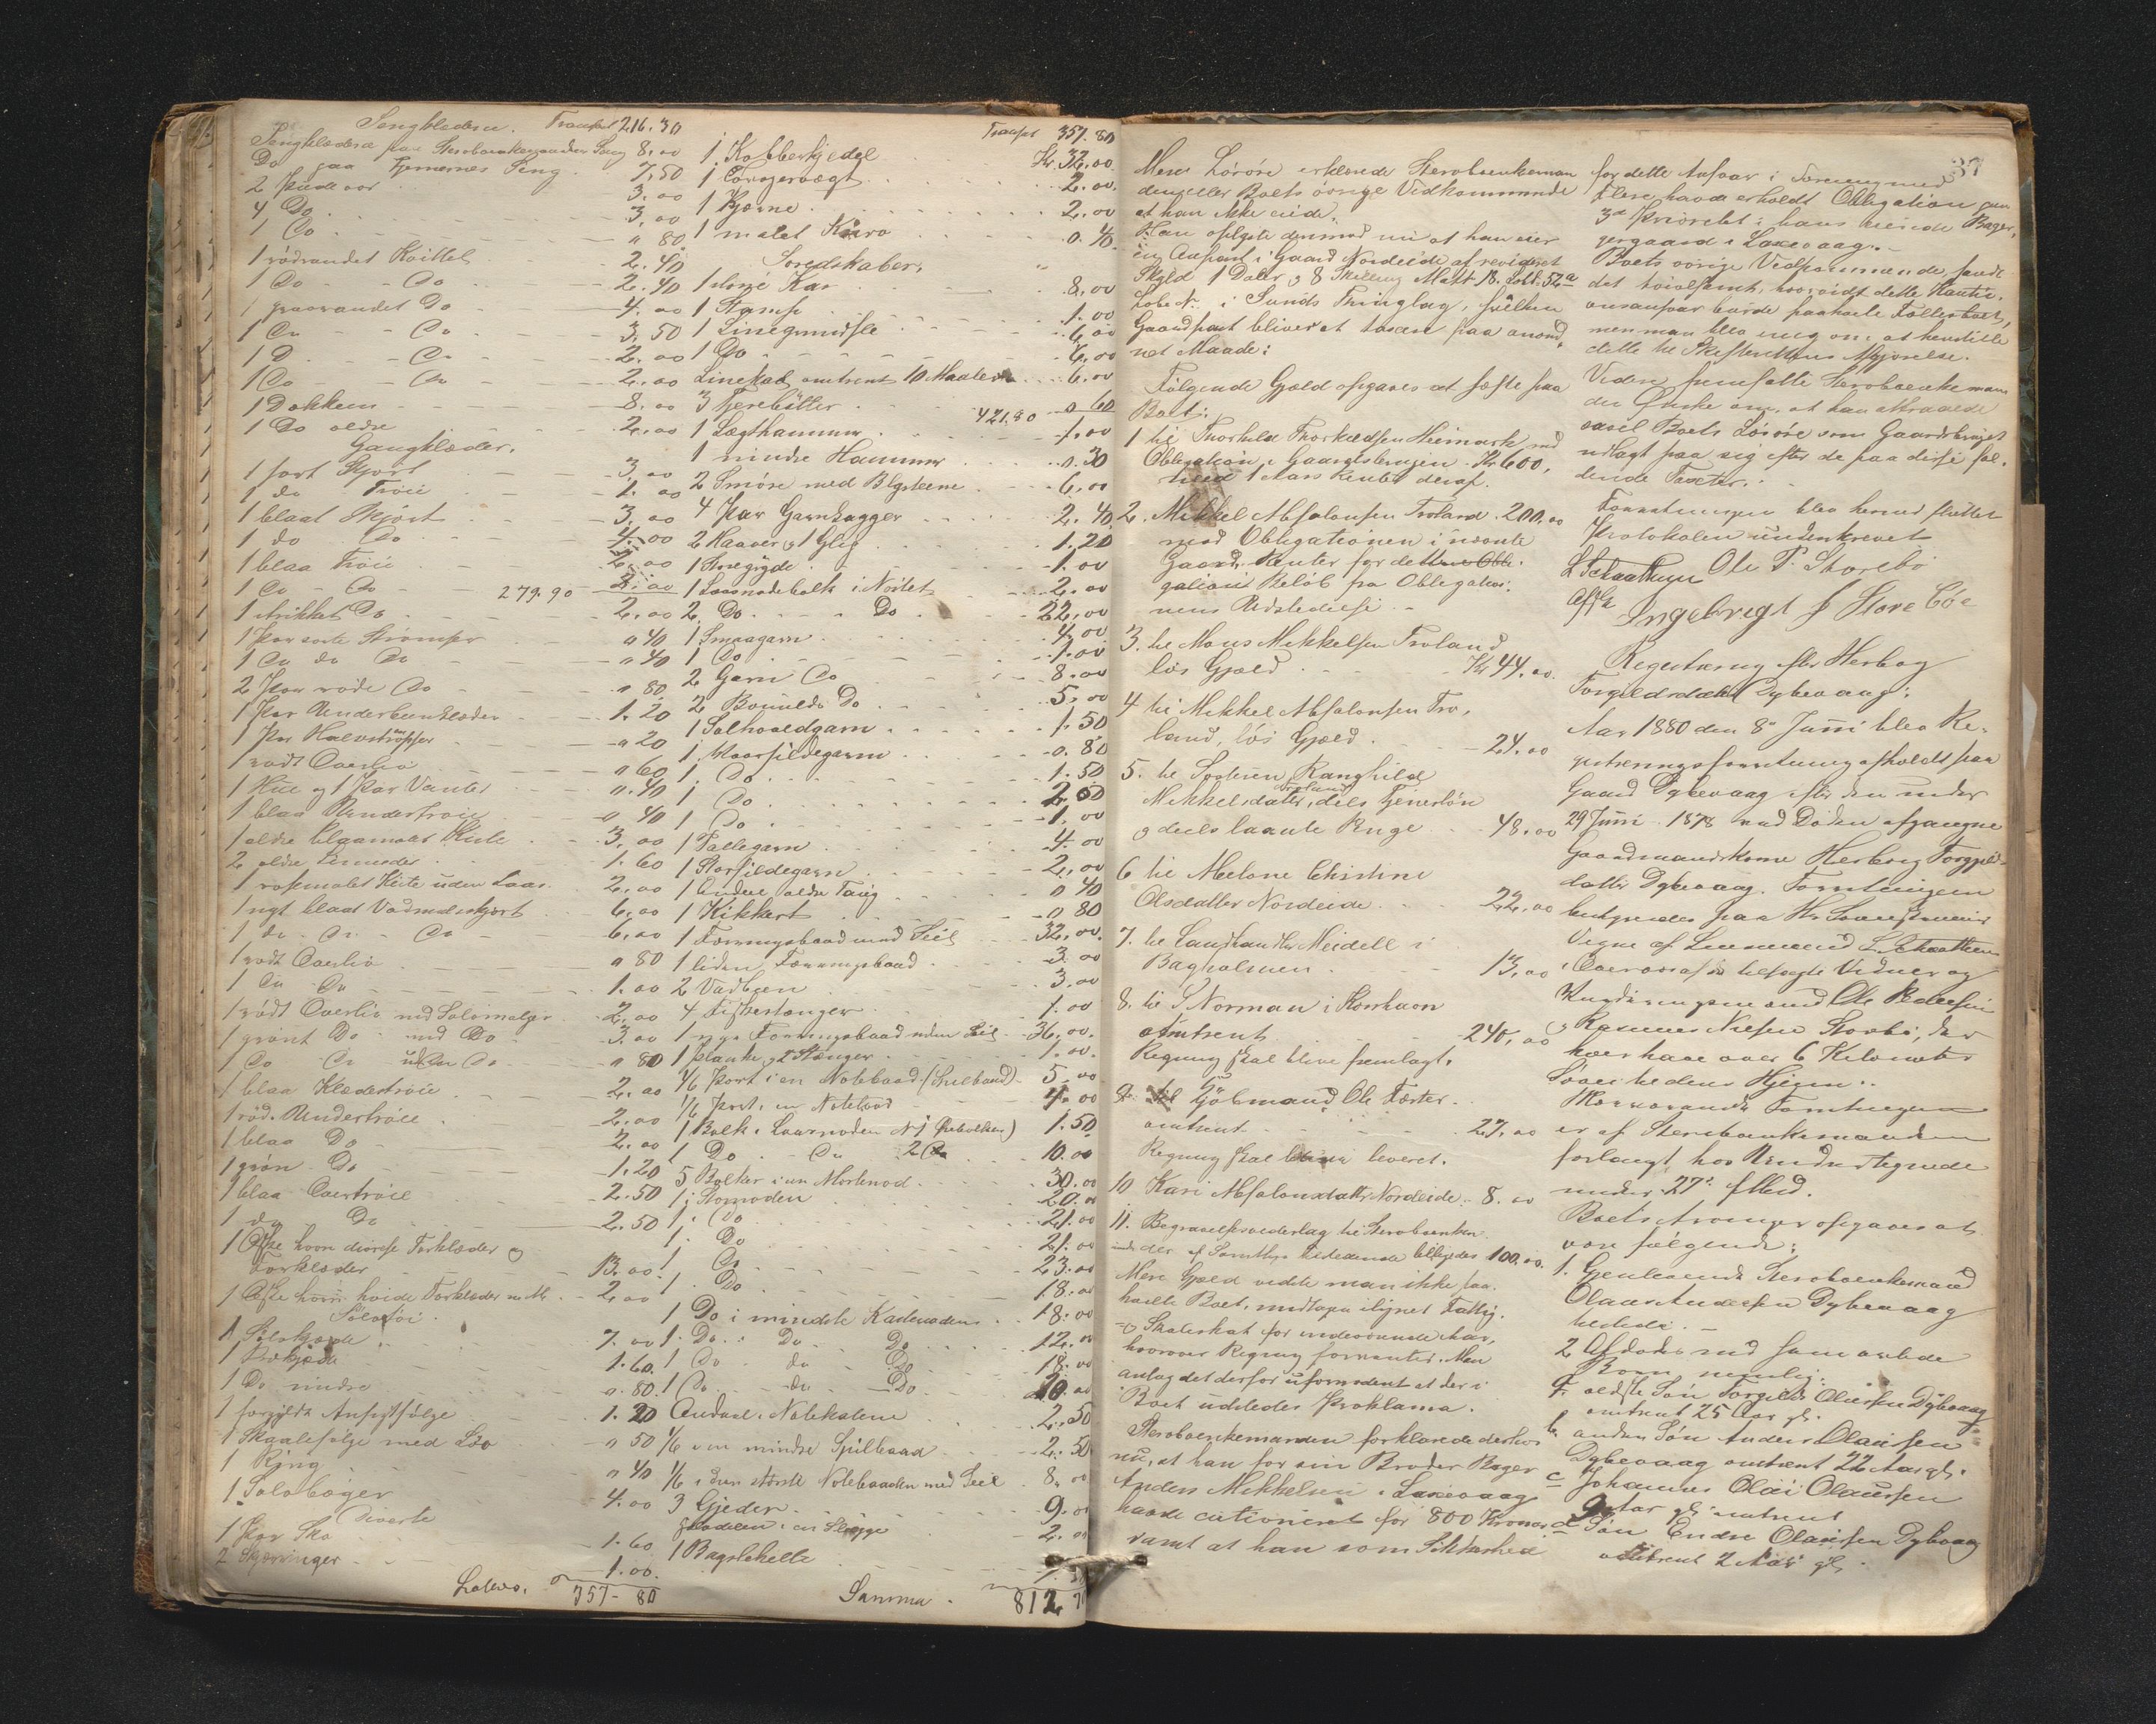 Sengklæder. Transport 216.30
Sengklæder paa Stervboenkemandens Seng 8.00
Do paa Tjernernes Seng 7.50
2 Puder 3.00
4 Do 3.00
1 Do " 80
1 rödrandet Kvittel 2.40
1 Do - Do 2.40
1 graarandet Do 4.00
1 Do - Do 3.50
1 D. - Do 2.00
1 Do - Do 2.00
1 Dækken 8.00
1 Do ældre 2.00
Gangklæder.
1 sort Skjört 3.00
1 do Tröie 1.00
1 blaat Skjört 3.00
1 do Do 4.00
1 blaa Tröie 2.00
1 Do - Do 279.90 2.00
1 strikket Do 2.00
1 Par sorte Strömper " 40
1 Do do Do " 40
2 Par röde Do " 80
1 Par Underbenklæder 1.20
1 Par Halvströmper " 20
1 rödt Overliv " 60
1 Hue og 1 Par Vanter " 40
1 blaa Undertröie " 40
1 ældre blaamalt Kiste 3.00
2 ældre 1.60
1 rosemalet Kiste uden Laas 2.00
1 nyt blaat Vadmelskjört 6.00
1 do - Do - Do 6.00
1 rödt Overliv " 80
1 Do Do 1.00
1 rödt Overliv med Sölvmalger 2.00
1 grönt Do med Do 3.00
1 Do Do uden Do " 80
1 blaa Klædeströie 2.00
1 röd Undertröie 2.00
1 blaa Do 2.00
1 grön Do 1.20
1 blaa Overtröie 2.50
1 do Do 2.50
1 Æske hvori diverse Forklæder og
Torklæder 13.00
1 Æske hvori hvide Torklæder m. M. 2.00
Sölvtöi.
1 Sölvskjede 7.00
1 1.60
1 Do mindre " 80
1 forgyldt Ansigtsölje 1.20
1 Skaalesölje med Löv " 50
1 Ring " 40
1 Sölvbæger 4.00
Diverse
1 Par Sko 1.60
2 Skjæringer 1.00
Lateris. 357-80
Transpt 357.80
1 Kobberkjedel Kr 32.00
1 Bismervægt 2.00
1 Kjerne 2.00
1 malet Kurv 0.40
Söredskaber.
1 större Kar 8.00
1 Stamp 1.00
1 Linegnidsle 6.00
1 Do 6.00
Linekal omtrent 10 Maaler 6.00
3 Tjerebötter 421.80 0.60
1 Lægthammer 1.00
1 mindre Hammer 0.30
2 Snöre med Blysteene 6.00
4 Par Garnbagger 2.40
2 Haaver og 1 Glip 1.20
1 Storegryde 1.00
1 Laasnodebolk i Nölet 2.00
2 Do - Do 22.00
1 Smaagarn 4.00
1 Do 1.00
2 Garn Do 8.00
2 Bomulds Do 5.00
1 Salhovedgarn 1.50
1 Vaarsildegarn 0.80
1 Do 1.50
1 Do 2.00
1 Do 1.00
1 Fællegarn 4.00
1 Storsildegarn 2.00
1 Andeel ældre Toug " 40
1 Kikkert " 80
1 Færingsbaad med Seil 32.00
1 liden Færingsbaad 3.00
2 Vadbeen 3.00
4 Fiskestænger 1.00
1 nye Færingsbaad uden Seil 36.00
1 Planke og 2 Stænger 1.00
1/6 Part i en Notebaad (Spilbaad) 5.00
1/6 Part i en Notebaad 4.00
1 Bolk i Laasnoden N 1 1.50
1 Do - Do 2 Do 10.00
5 Bolker i en Mortenod 30.00
1 i Stornoden 20.00
1 Do 21.00
1 Do 21.00
1 Do 23.00
1 Do 18.00
1 Do i mindste Kastenoden 18.00
1 Do Do Do 12.00
1 Do do Do 18.00
1 Do do Do 20.00
Andeel i Notekalene 2.50
1/6 i en mindre Spilbaad 2.50
1/6 i den største Notebaaden med Seil 8.00
3 Gjeder 9.00
Andelen i en Slægge 2.00
1 Bagstehelle
Summa 812
37
Mere Lösöre erklærede Stervboenkeman
den eller Boets övrige Vedkommende
at han ikke eiede.
Han oplyste dernæst nu at han eier
en Anpart i Gaard Nordeide af revideret
Skyld 1 Daler og 8 Skilling Matr. 18. Gbl. 52a
Löbe N. i Sunds Thinglag, hvilken
Gaardpart bliver at taxere paa anord-
net Maade:
Fölgende Gjæld opgaves at hefte paa
Boet:
1 til Thorkild Thorkildsen Heimark med
Obligation i Gaardsbrugen Kr 600,
med 1 Aars Renter deraf.
2. Mikkel Absalonsen Troland 200.00
mod Obligationen i nævnte
Gaard. Renter for dette Obli-
gations Belöb fra Obligatio-
nens Udstedelse.
3. til Mons Mikkelsen Troland
lös Gjæld Kr 44.00
4 til Mikkel Absalonsen Tro-
land, lös Gjæld 24.00
5. til Söster Ranghild
Mikkelsdatter Troland, dels Tjenerlön
og deels laante Penge 48.00
6 til Malene Christine
Olsdatter Nordeide 22.00
7. til Landhandler Meidell i
Bagholmen 13.00
8. til S Norman i Korshavn
omtrent 240.00
Regning skal blive fremlagt.
9. til Gjölmand Ole Fæster
omtrent 27.00
Regning skal blive leveret.
10 Kari Absalonsdatter Nordeide 8.00
11. Begravelsesvederlag til Stervboenke-
manden der af Samtlige Tilstedende billigedes 100.00.
Mere Gjæld vidste man ikke paa-
hvilte Boet, undtagen ilignet Fattig-
og Skoleskat for indeværende Aar,
hvorover Regning forventes. Man
antog det derfor ufornödent at der i
Boet udstedes Proklama.
Stervboenkemanden forklarede derhos
nu, at han for sin Broder Bager
Anders Mikkelsen i Laxevaag
havde cautioneret for 800 Kroner,
samt at han som Sikkerhed
for dette Ansvar i Forening med
Flere havde erholdt Obligation paa
3de Prioritet i hans eiende Bager-
gergaard i Laxevaag.
Boets övrige Vedkommende fandt
det tvivlsomt, hvorvidt dette Kautio-
onsansvar burde paahvile Fællesboet,
men man blev enig om at henstille
dette til Skifterettens Afgjörelse.
Videre fremsatte Stervboenkeman
den Ønske om, at han attraaede
saavel Boets Lösöre som Gaardsbruget
udlagt paa sig efter de paa disse fal-
dende Taxter.
Forretningen blev hermed sluttet
Protokolen underskrevet
L Schaathun Ole P. Storebö
Afskr Ingebregt J Store böe
Registrering efter Herborg
Torgilsdatter Dybevaag.
Aar 1880 den 8de Juni blev Re-
gistreringsforretning afholdt paa
Gaard Dybevaag efter den under
29 Juni 1878 ved Döden afgangne
Gaardmandskone Herborg Torgils-
datter Dybevaag. Forretningen
betyredes paa Hr. Sorenskriverens
Vegne af Lensmand L. Schaathun
i Overvær af de tilsagte Vidner og
Vurderingsmænd Ole Pedersen
og Rasmus Nilsen Storebö, der
hver have over 6 Kilometer
Söveie til dens Hjem.
Nærværende Forretningen
er af Stervboenkemanden
forlangt hos Undertegnede
under 27de f. Md.
Boets Arvinger opgaves at
være følgende:
1. Gjenlevende Stervboenkemand
Olaus Andersen Dybevaag
tilstede.
2 Afdödes med ham avlede
Börn nemlig:
a. ældste Sön Torgils Olausen Dybevaag
omtrent 25 Aar gl.
b. anden Sön Anders Olaussen
Dybevaag omtrent 22 Aar gl.
c Johannes Olai Olaussen
9 Aar gl. omtrent
d Sön Endre Olaussen Dybvaag
omtrent 2 Aar gl.